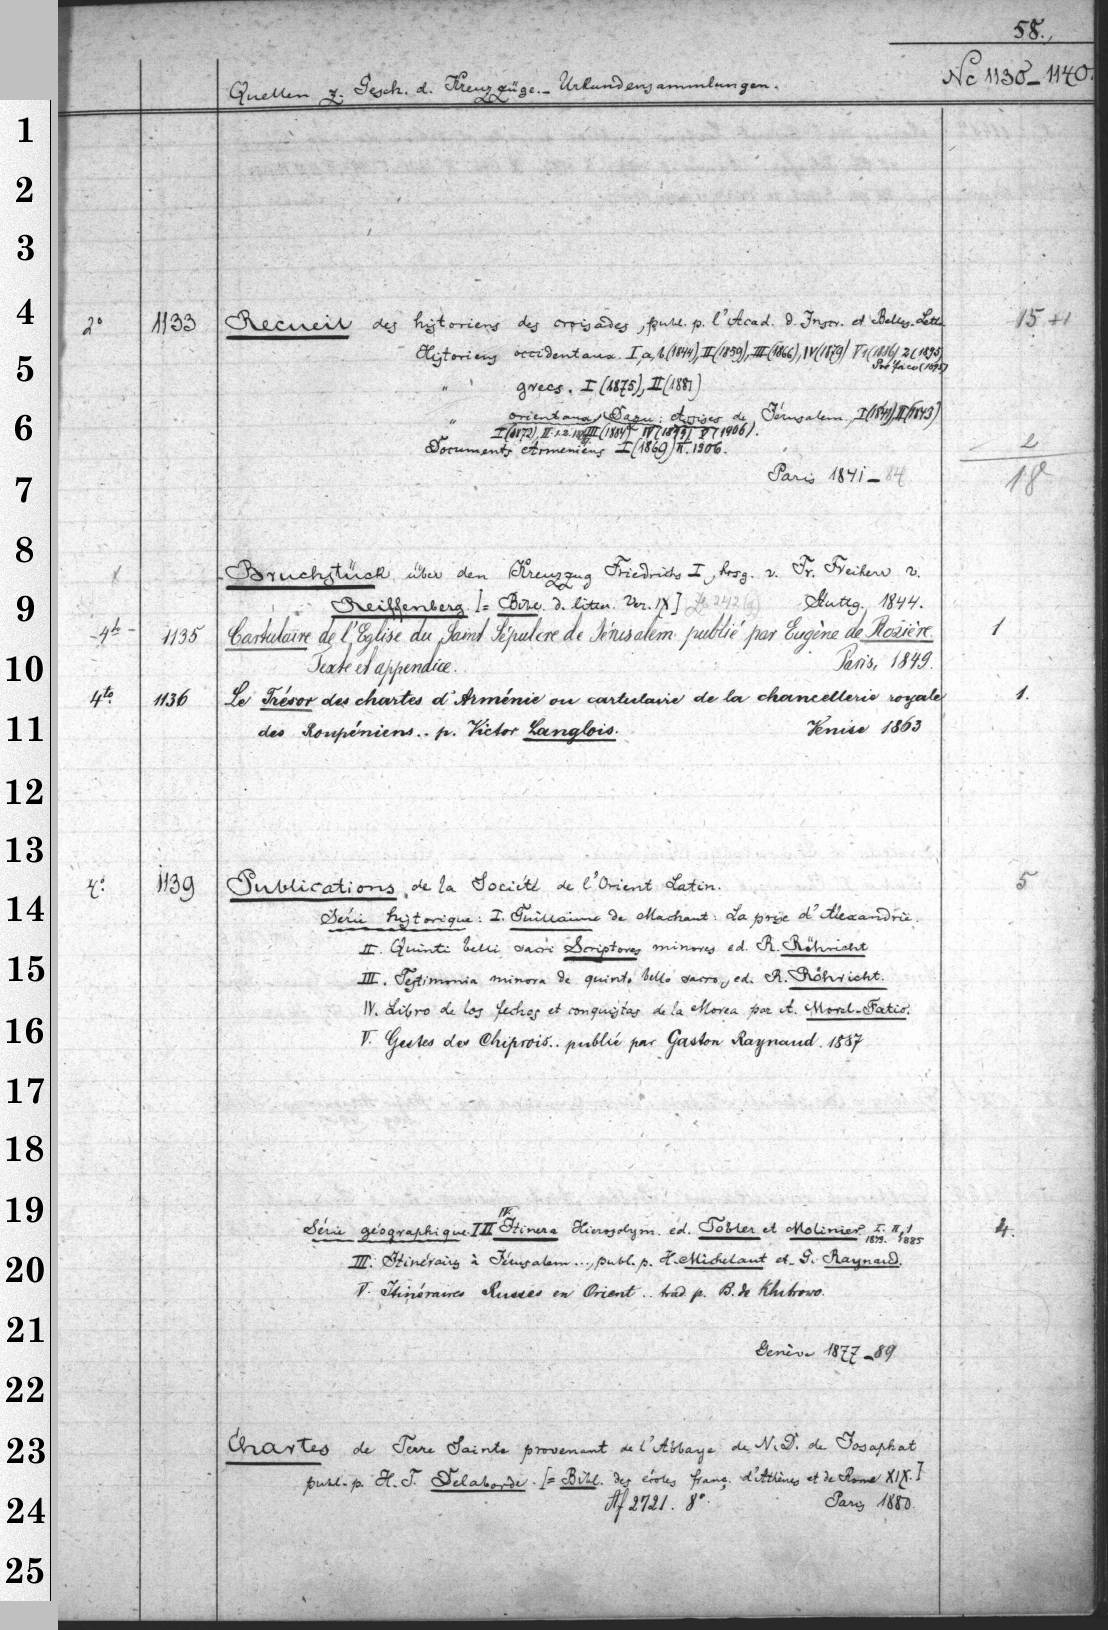 58.
Quellen z. Gesch. d. Kreuzzüge. - Urkundensammlungen.
Nc 1130-1140.
1
2
3
4
2° 1133 Recueil des historiens des croisades, publ. p. l'Acad. d. Inscr. et Belles-Lettr. 15 +1
Historiens occidentaux I,a,b(1844),II(1859),III(1866),IV(1879) V 1(1886) 2(1895)
5
" grecs. I(1875), II(1881)
6
" orientaux Dazu: Assises de Jérusalem, I(1841)II(1843)
I(1872), II 1.2 III(1884) IV(1898) V(1906).
2
Documents Arméniens I(1869) II.1906.
7
Paris 1841-84 18
8
Bruchstück über den Kreuzzug Friedrichs I, hrsg. v. Fr. Freiherr v.
9
Reiffenberg. [= Bibl. d. litter. Ver. IX] Stuttg. 1844.
4to 1135 Cartulaire de l'Eglise du Saint Sépulcre de Jérusalem publié par Eugène de Rozière. 1
10
Texte et appendice. Paris, 1849.
4to. 1136 Le Trésor des chartes d'Arménie ou cartulaire de la chancellerie royale 1.
11
des Roupéniens.. p. Victor Langlois. Venise 1863
12
13
4°. 1139 Publications de la Société de l'Orient Latin. 5
14
Série historique: I. Guillaume de Machaut: La prise d'Alexandrie.
II. Quinti belli sacri Scriptores minores ed. R. Röhricht
15
III. Testimonia minora de quinto bello sacro, ed. R. Röhricht.
IV. Libro de los fechos et conquistas de la Morea par A. Morel-Fatio.
16
V. Gestes des Chiprois.. publié par Gaston Raynaud. 1887
17
18
19
Série géographique I II IV. Itinera Hierosolym. ed. Tobler et Molinier I. 1879. II,1 1885 4.
20
III: Itinéraires à Jérusalem..., publ. p. H. Michelant et G. Raynaud.
V. Itinéraires Russes en Orient.. trad p. B. de Khitrowo.
21
Genève 1877-89
22
23
Chartes de Terre Sainte provenant de l'Abbaye de N.D. de Josaphat
publ. p. H. F. Delaborde. [= Bibl. des écoles franç. d'Athènes et de Rome XIX.]
24
Af 2721. 8°. Paris 1880.
25